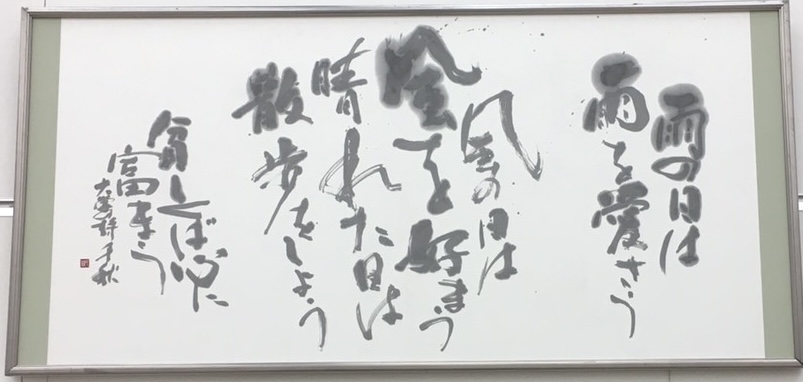 雨の日は
雨を愛さう
風の日は
風を好まう
晴れた日は
散歩をしよう
貧しくば心に
富まう
大學詩 千秋